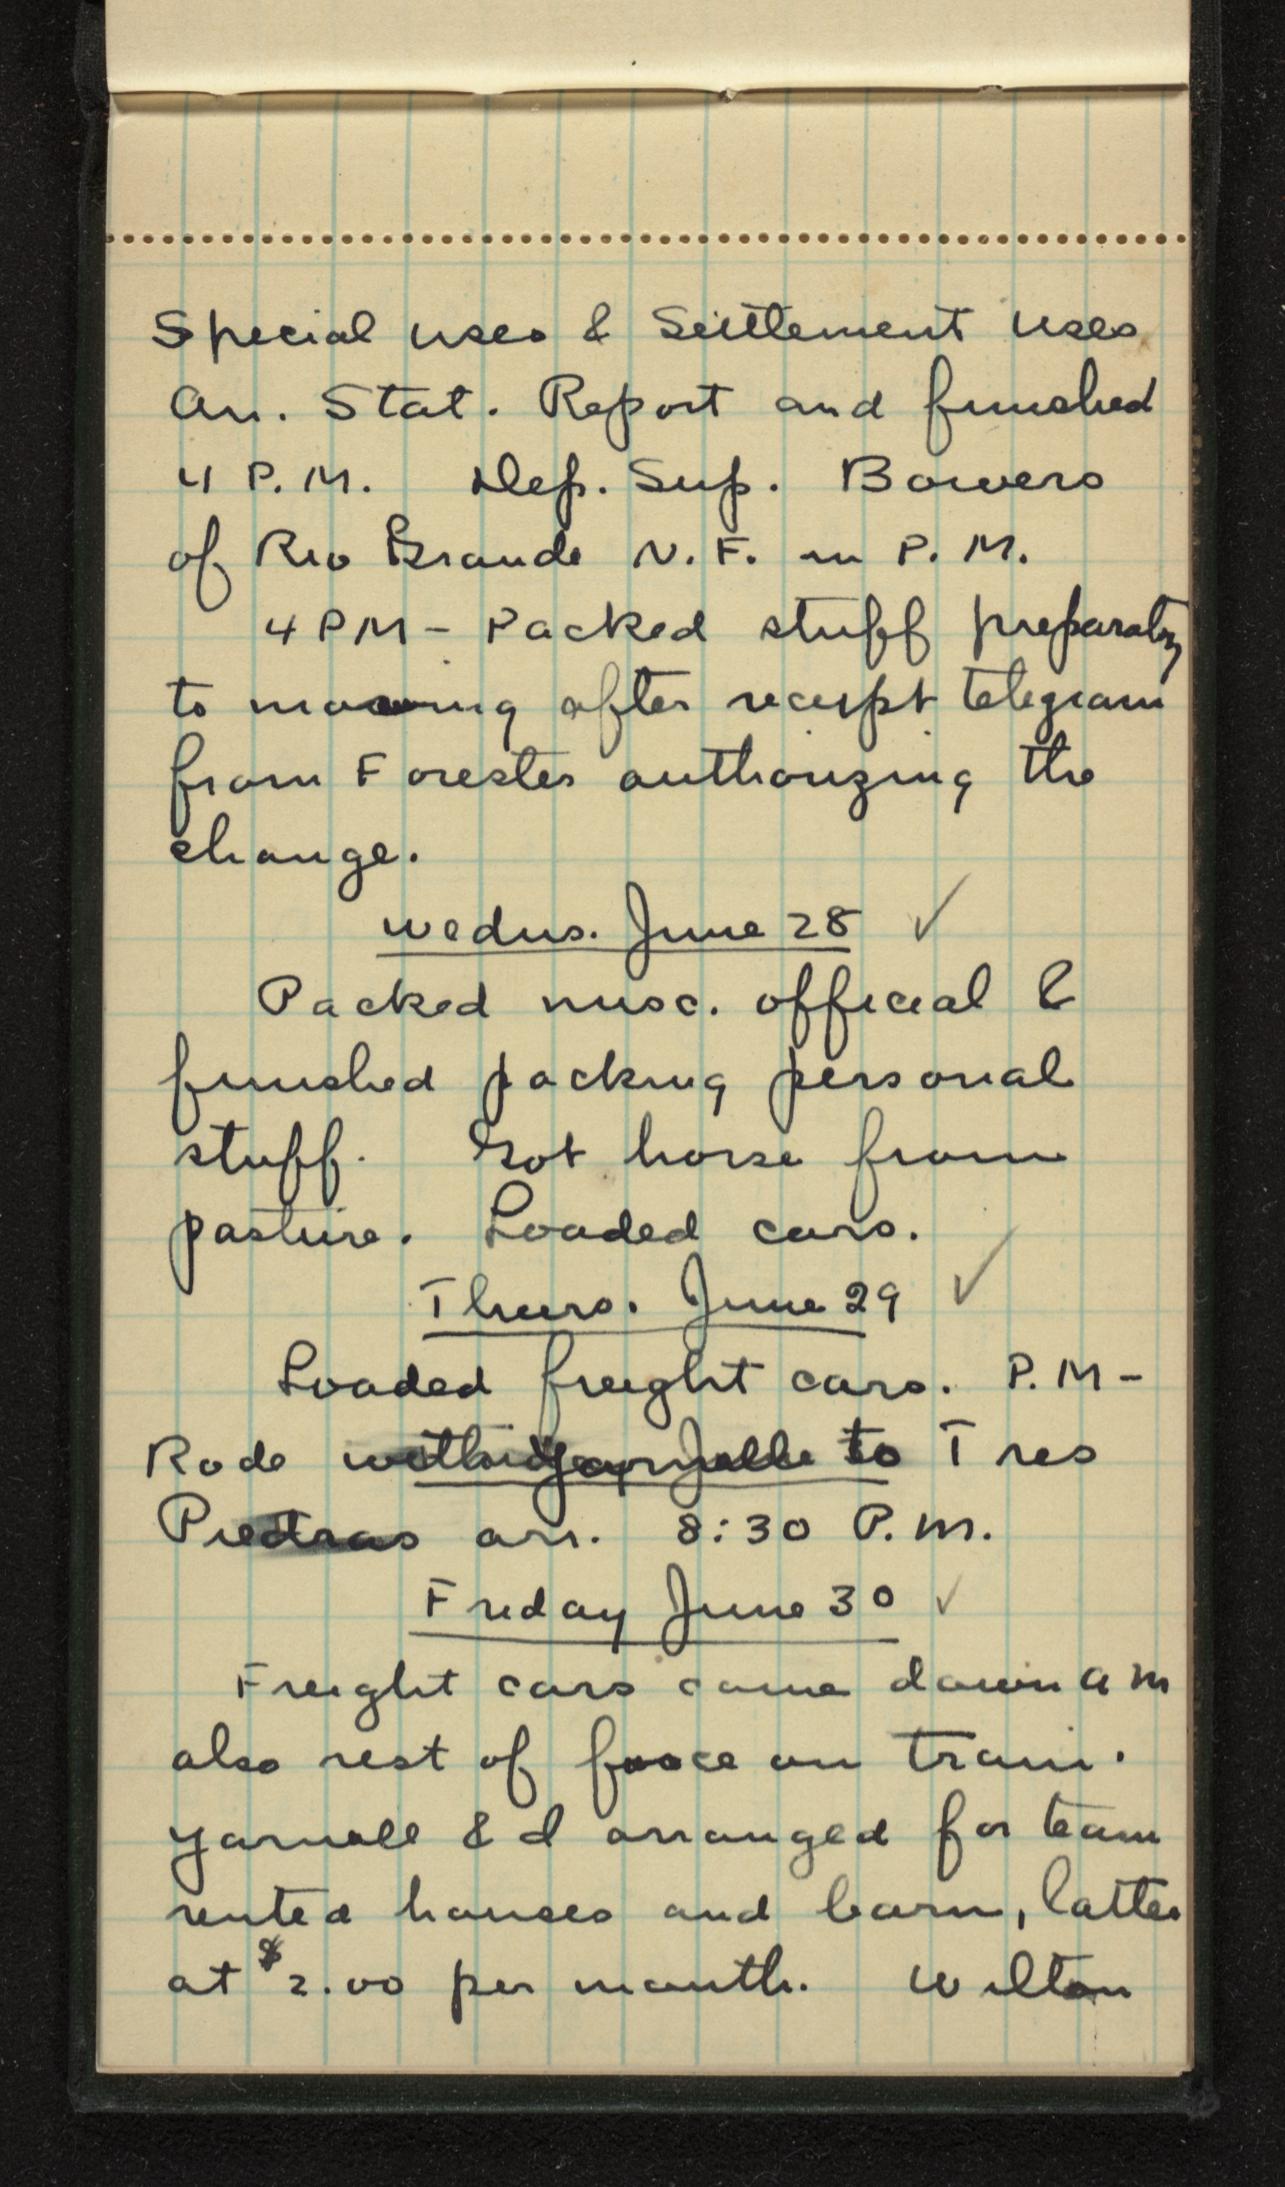 Special uses & Settlement uses
An. Stat. Report and finished
4 P.M. Dep. Sup. Bowers
of Rio Grande N.F. in P.M.
4 PM - Packed stuff preparatory
to moving after receipt telegram
from Forester authorizing the
change.
Wednes. June 28 ✓
Packed misc. official &
finished packing personal
stuff. Got horse from
pasture. Loaded cars.
Thurs. June 29 ✓
Loaded freight cars. P.M -
Rode with Yarnelle to Tres
Piedras arr. 8:30 P.M.
Friday June 30 ✓
Freight cars came down A M
also rest of force on train.
Yarnelle & I arranged for team
rented houses and barn, latter
at $2.00 per month. Wilton